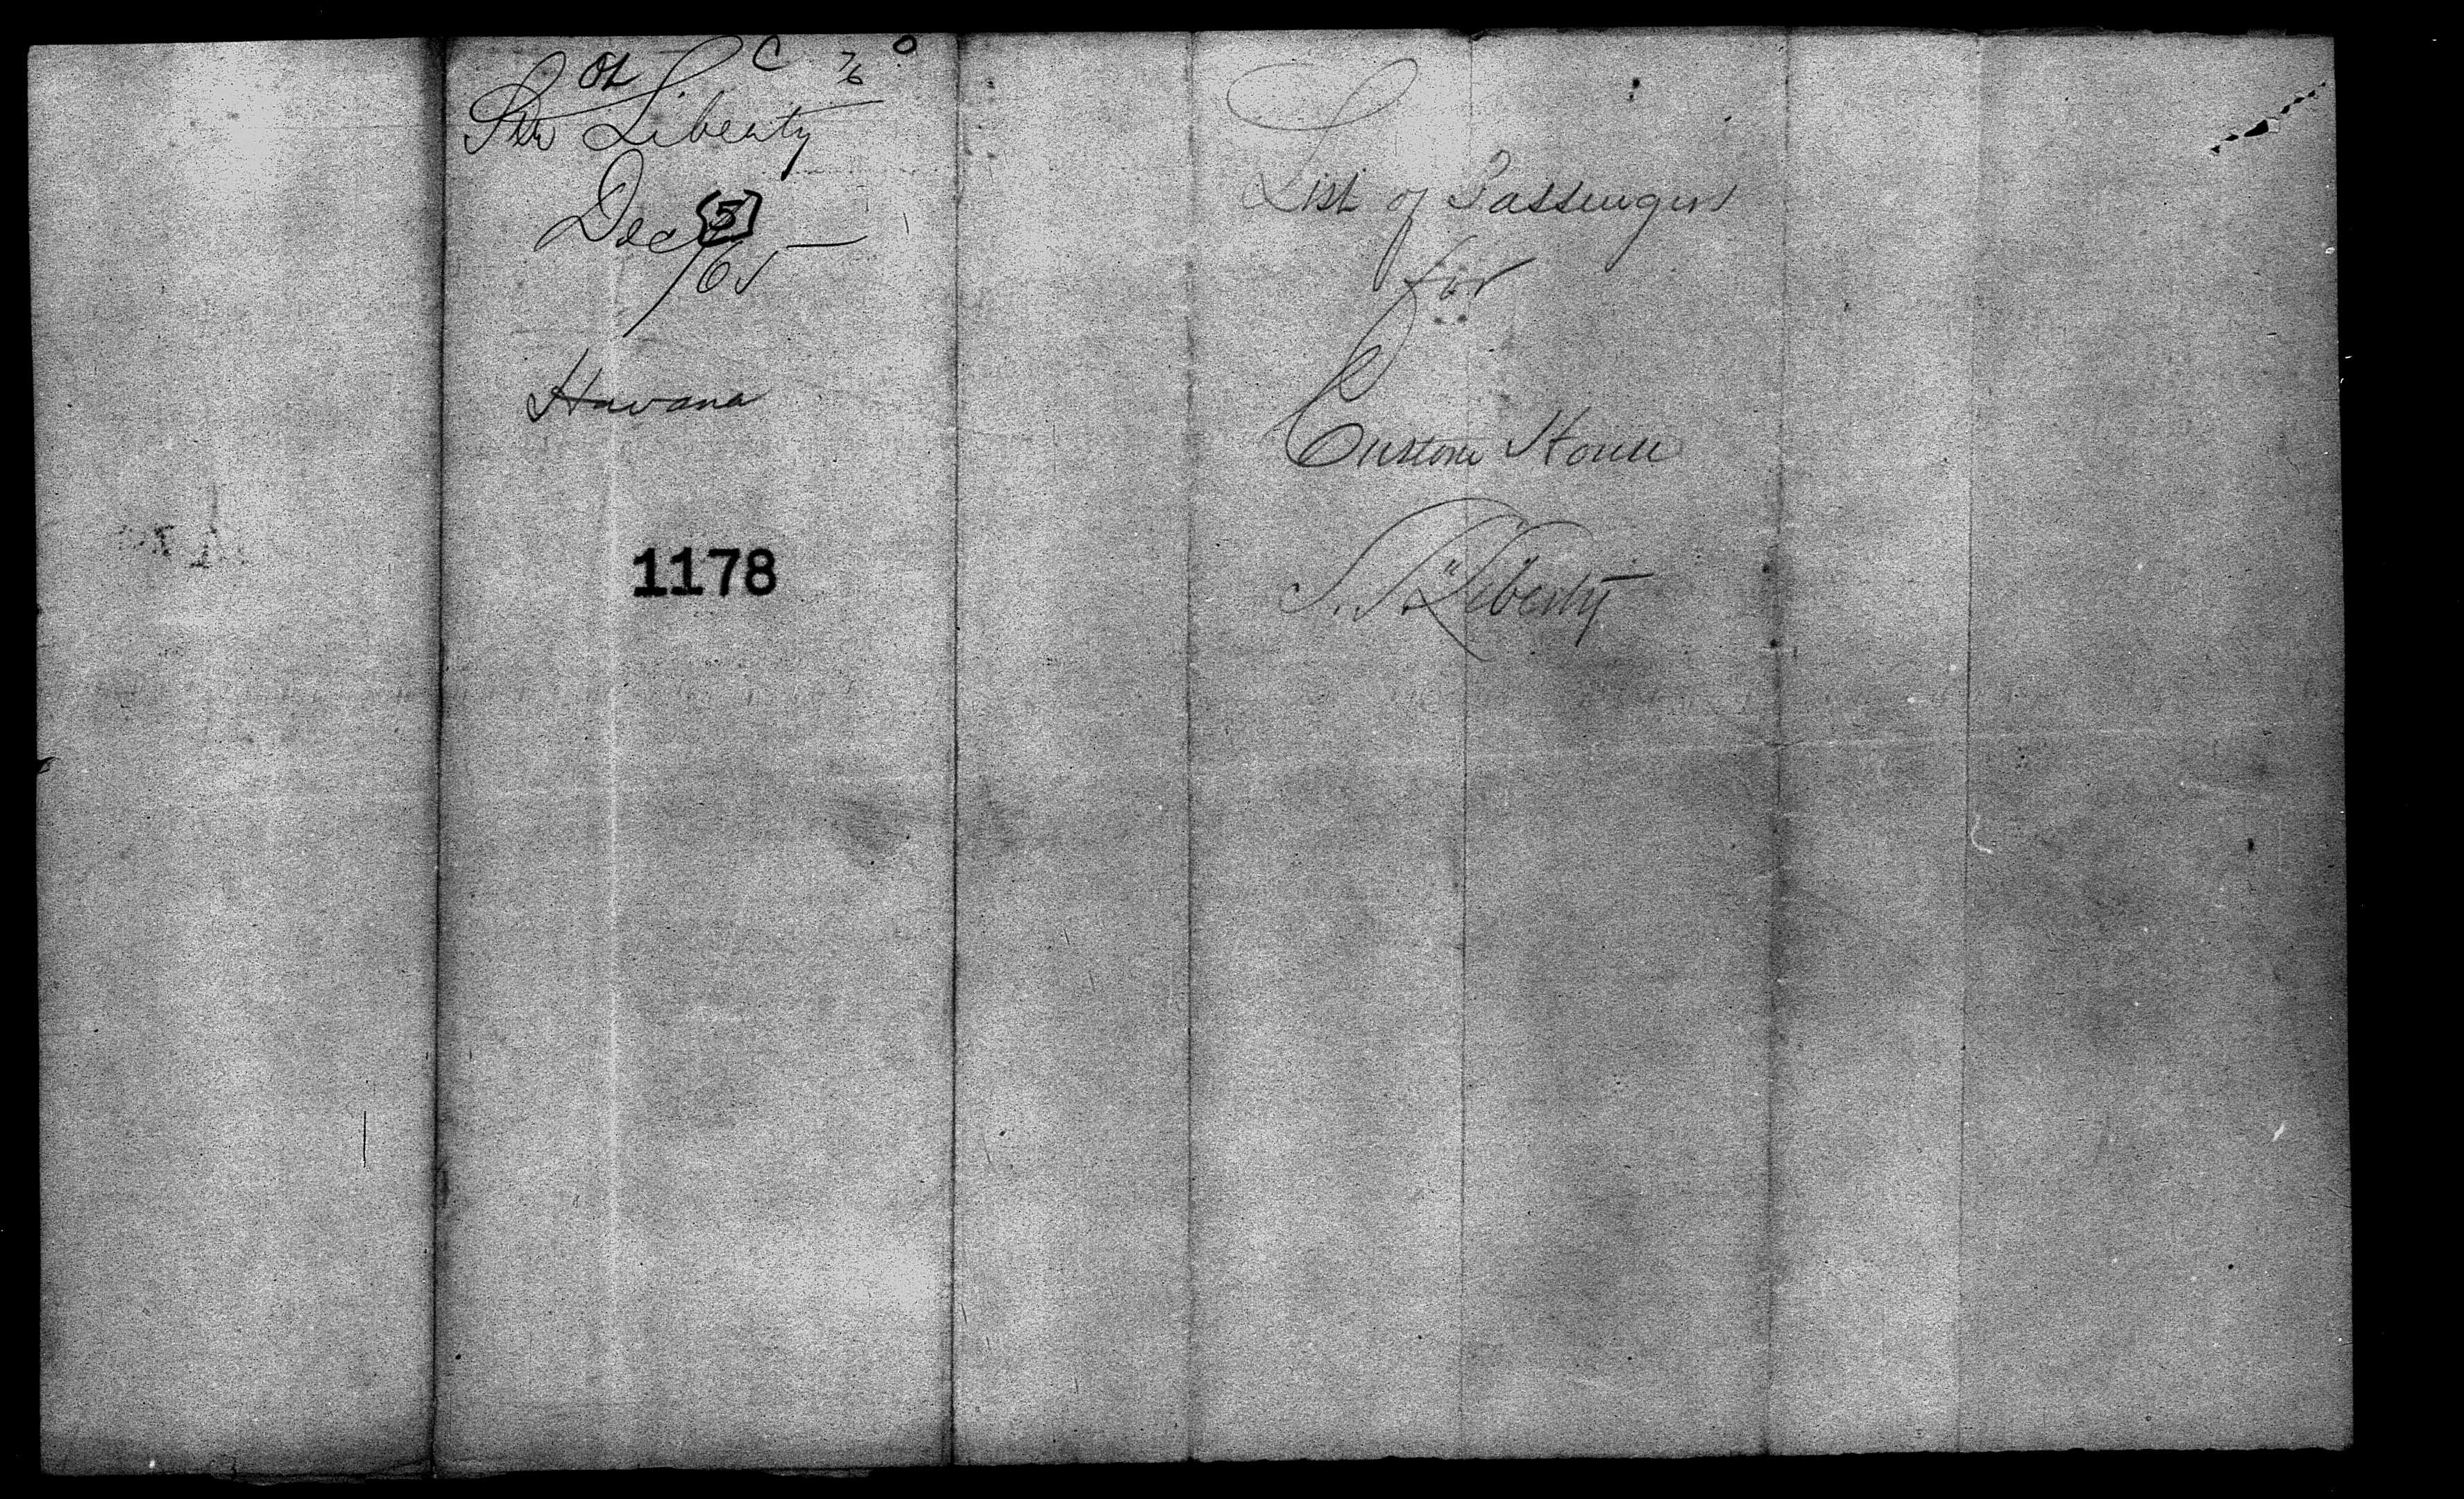 OK C 7/6 0
Str Liberty
Dec [5]
/65
Havana
1178
List of Passengers
for
Custom House
S.S. "Liberty"